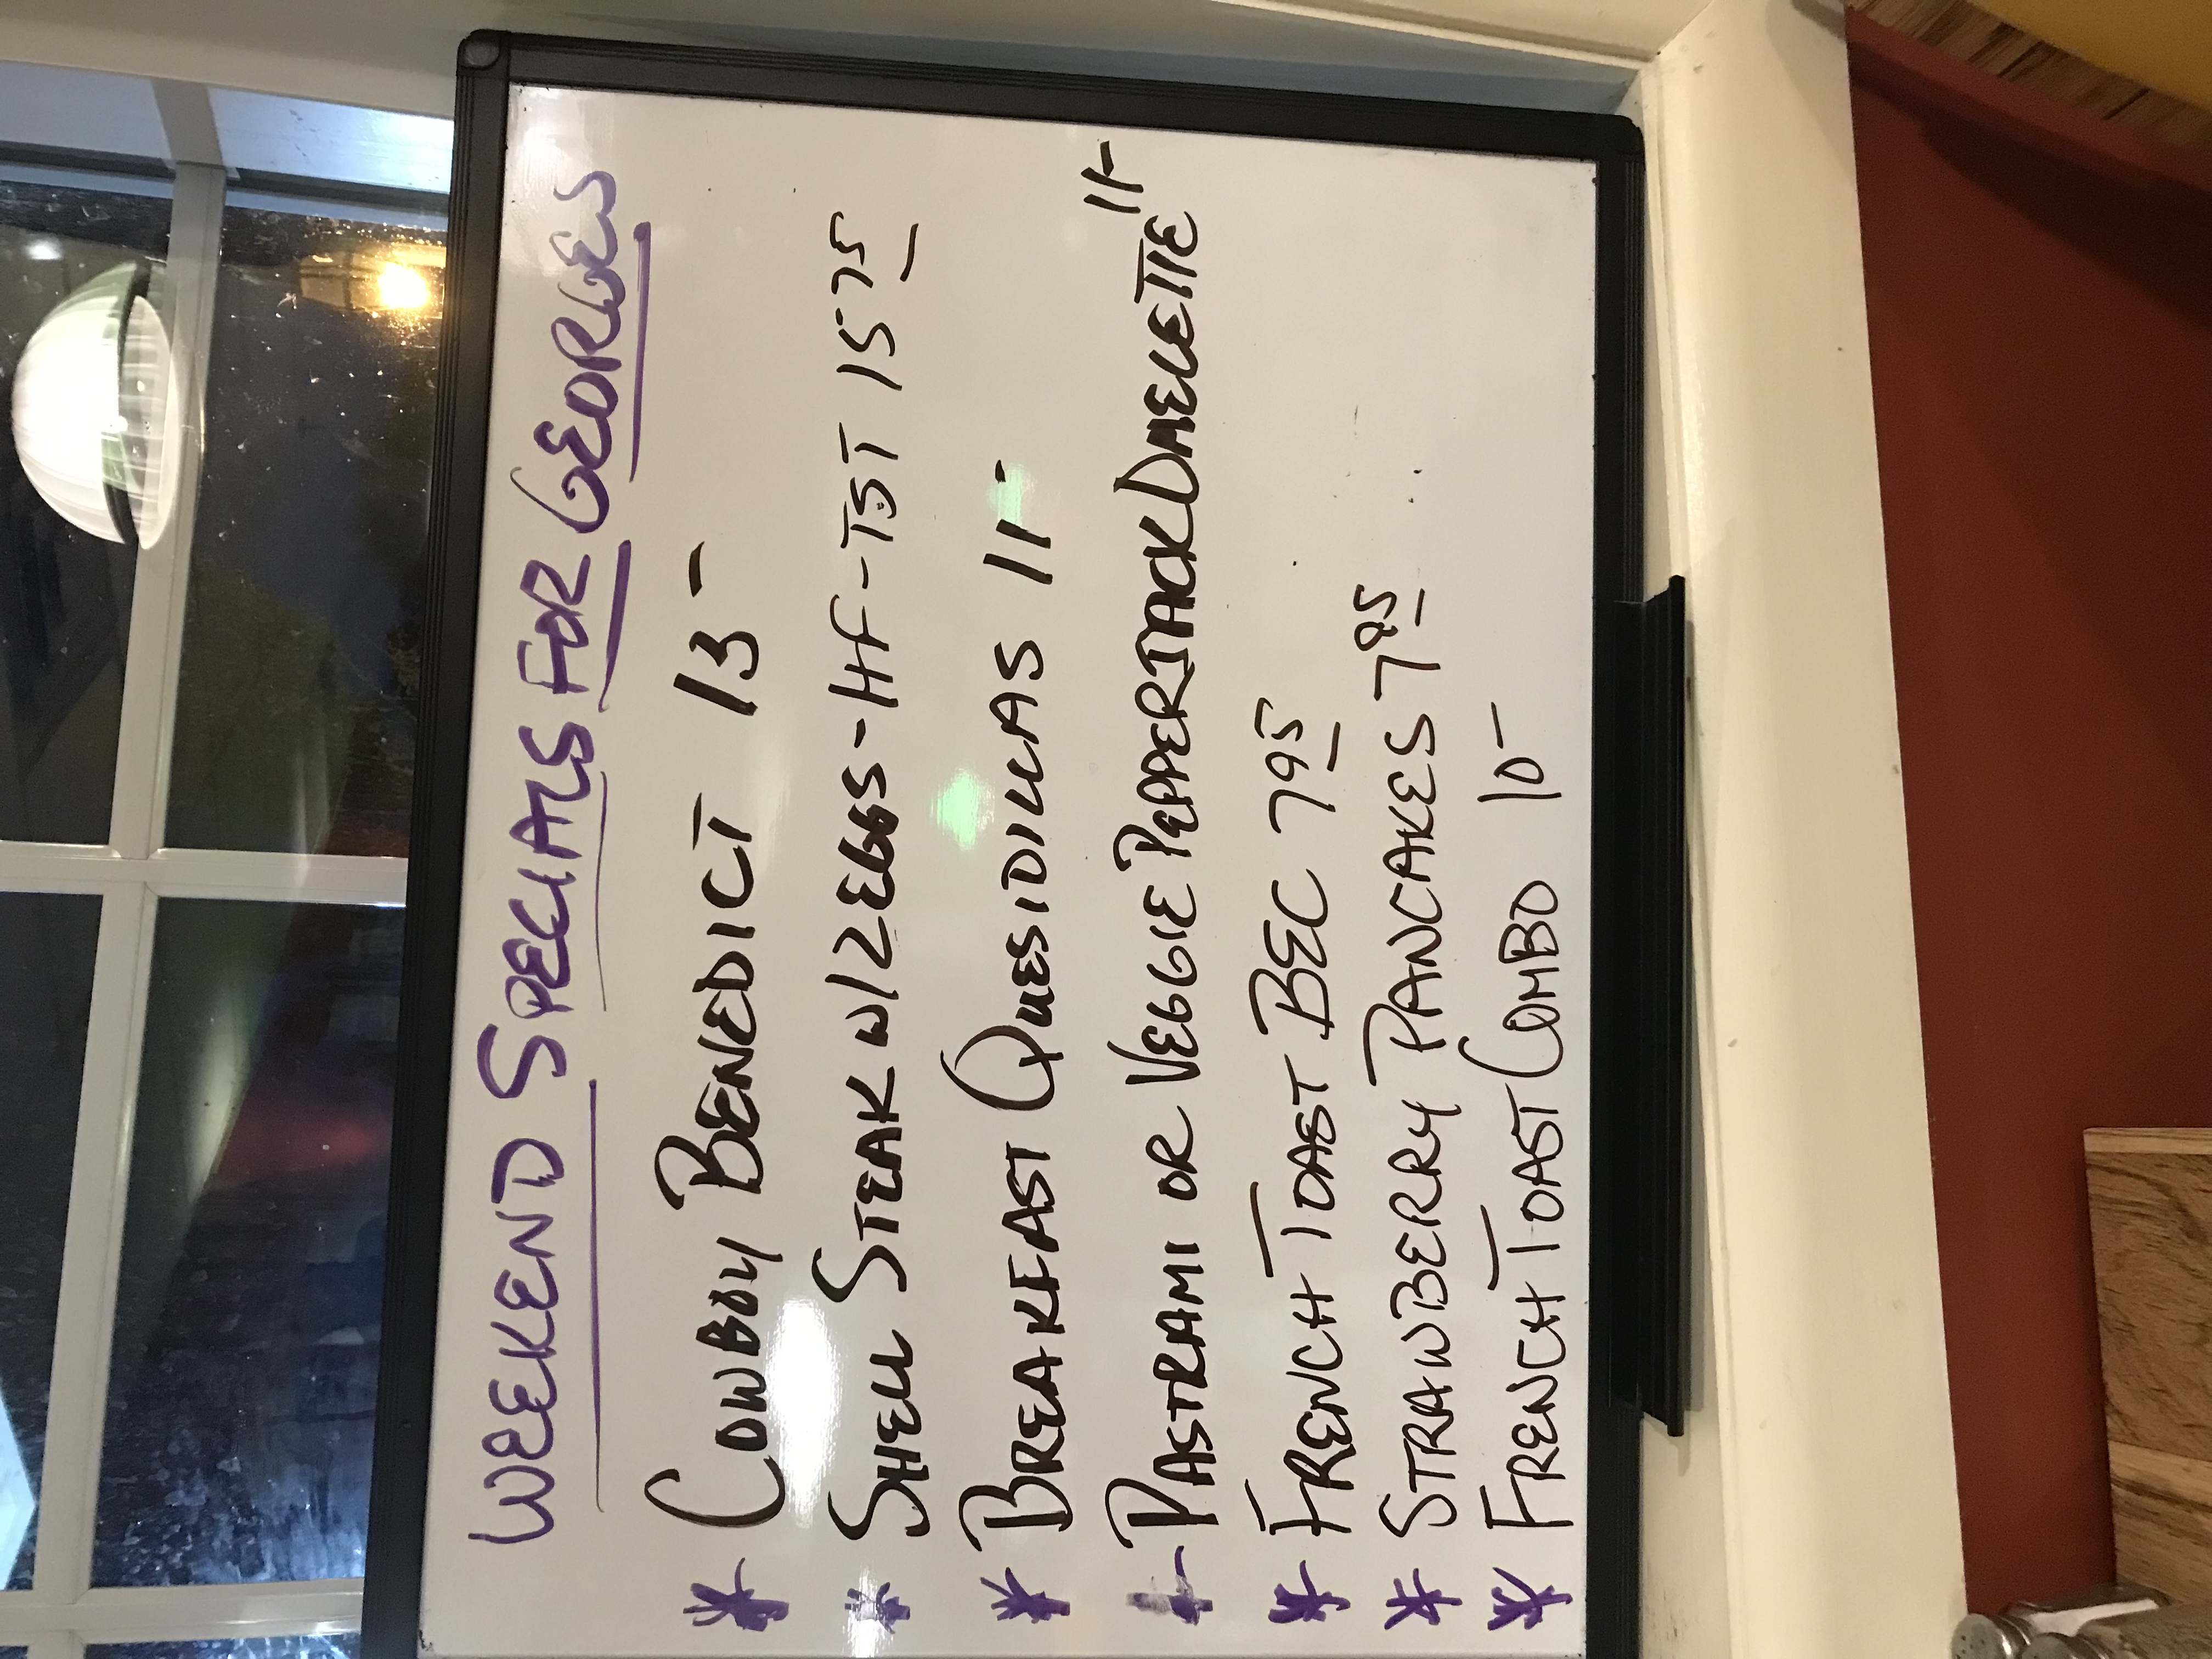 WEEKEND SPECIALS FOR GEORGES
* COWBOY BENEDICT 13-
* SHELL STEAK W/2EGGS-HF-TST 15 75
* BREAKFAST QUESIDILLAS 11-
* PASTRAMI OR VEGGIE PEPPERJACK OMELETTE 11-
* FRENCH TOAST BEC 7 95
* STRAWBERRY PANCAKES 7 95
* FRENCH TOAST COMBO 10-